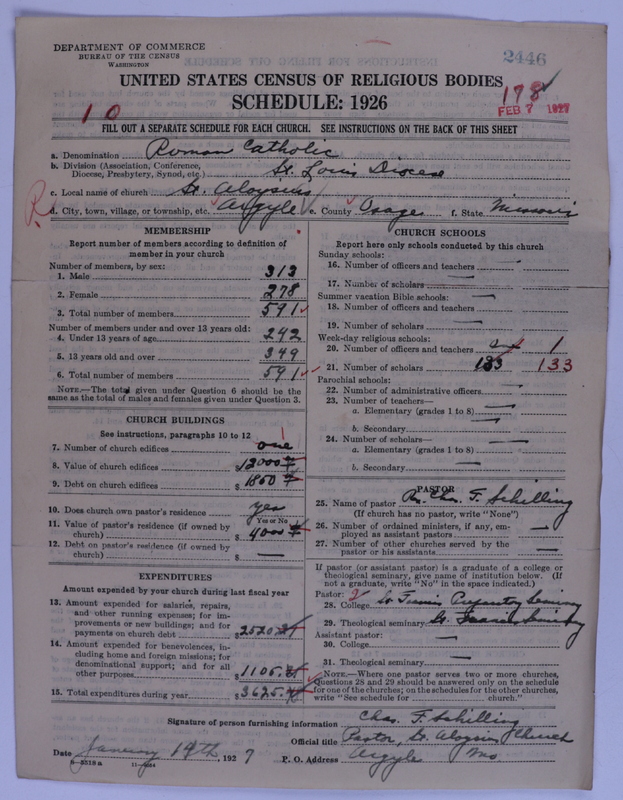 DEPARTMENT OF COMMERCE
BUREAU OF THE CENSUS
WASHINGTON
2446
UNITED STATES CENSUS OF RELIGIOUS BODIES
SCHEDULE: 1926
178
FEB 7 1927
10
FILL OUT A SEPARATE SCHEDULE FOR EACH CHURCH. SEE INSTRUCTIONS ON THE BACK OF THIS SHEET
a. Denomination Roman Catholic
b. Division (Association, Conference, Diocese, Presbytery, Synod, etc.) St. Louis Diocese
c. Local name of church St. Aloysius
R
d. City, town, village, or township, etc. Argyle e. County Osage f. State Missouri
MEMBERSHIP
Report number of members according to definition of
member in your church
Number of members, by sex:
1. Male 313
2. Female 278
3. Total number of members 591
Number of members under and over 13 years old:
4. Under 13 years of age 242
5. 13 years old and over 349
6. Total number of members 591
NOTE.—The total given under Question 6 should be the
same as the total of males and females given under Question 3.
CHURCH BUILDINGS
See instructions, paragraphs 10 to 12
1
7. Number of church edifices one
8. Value of church edifices $12000
9. Debt on church edifices $1850
10. Does church own pastor's residence? yes
Yes or No
11. Value of pastor's residence (if owned by
church) $4000
12. Debt on pastor's residence (if owned by
church) $ —
EXPENDITURES
Amount expended by your church during last fiscal year
13. Amount expended for salaries, repairs,
and other running expenses; for im-
provements or new buildings; and for
payments on church debt $2520
14. Amount expended for benevolences, in-
cluding home and foreign missions; for
denominational support; and for all
other purposes $1105
15. Total expenditures during year $3625
CHURCH SCHOOLS
Report here only schools conducted by this church
Sunday schools:
16. Number of officers and teachers —
17. Number of scholars —
Summer vacation Bible schools:
18. Number of officers and teachers —
19. Number of scholars —
Week-day religious schools:
20. Number of officers and teachers 1
21. Number of scholars 133 133
Parochial schools:
22. Number of administrative officers —
23. Number of teachers—
a. Elementary (grades 1 to 8) —
b. Secondary —
24. Number of scholars—
a. Elementary (grades 1 to 8) —
b. Secondary —
PASTOR
25. Name of pastor Rev. Chas. F. Schilling
(If church has no pastor, write "None")
26. Number of ordained ministers, if any, em-
ployed as assistant pastors —
27. Number of other churches served by the
pastor or his assistants —
If pastor (or assistant pastor) is a graduate of a college or
theological seminary, give name of institution below. (If
not a graduate, write "No" in the space indicated.)
Pastor: 2
28. College St. Francis Seminary
29. Theological seminary St. Francis Seminary
Assistant pastor:
30. College —
31. Theological seminary —
NOTE.—Where one pastor serves two or more churches,
Questions 28 and 29 should be answered only on the schedule
for one of the churches; on the schedules for the other churches,
write "See schedule for church."
Signature of person furnishing information Chas. F. Schilling
Official title Pastor, St. Aloysius Church
Date January 14th, 1927 P. O. Address Argyle Mo
8—5518a